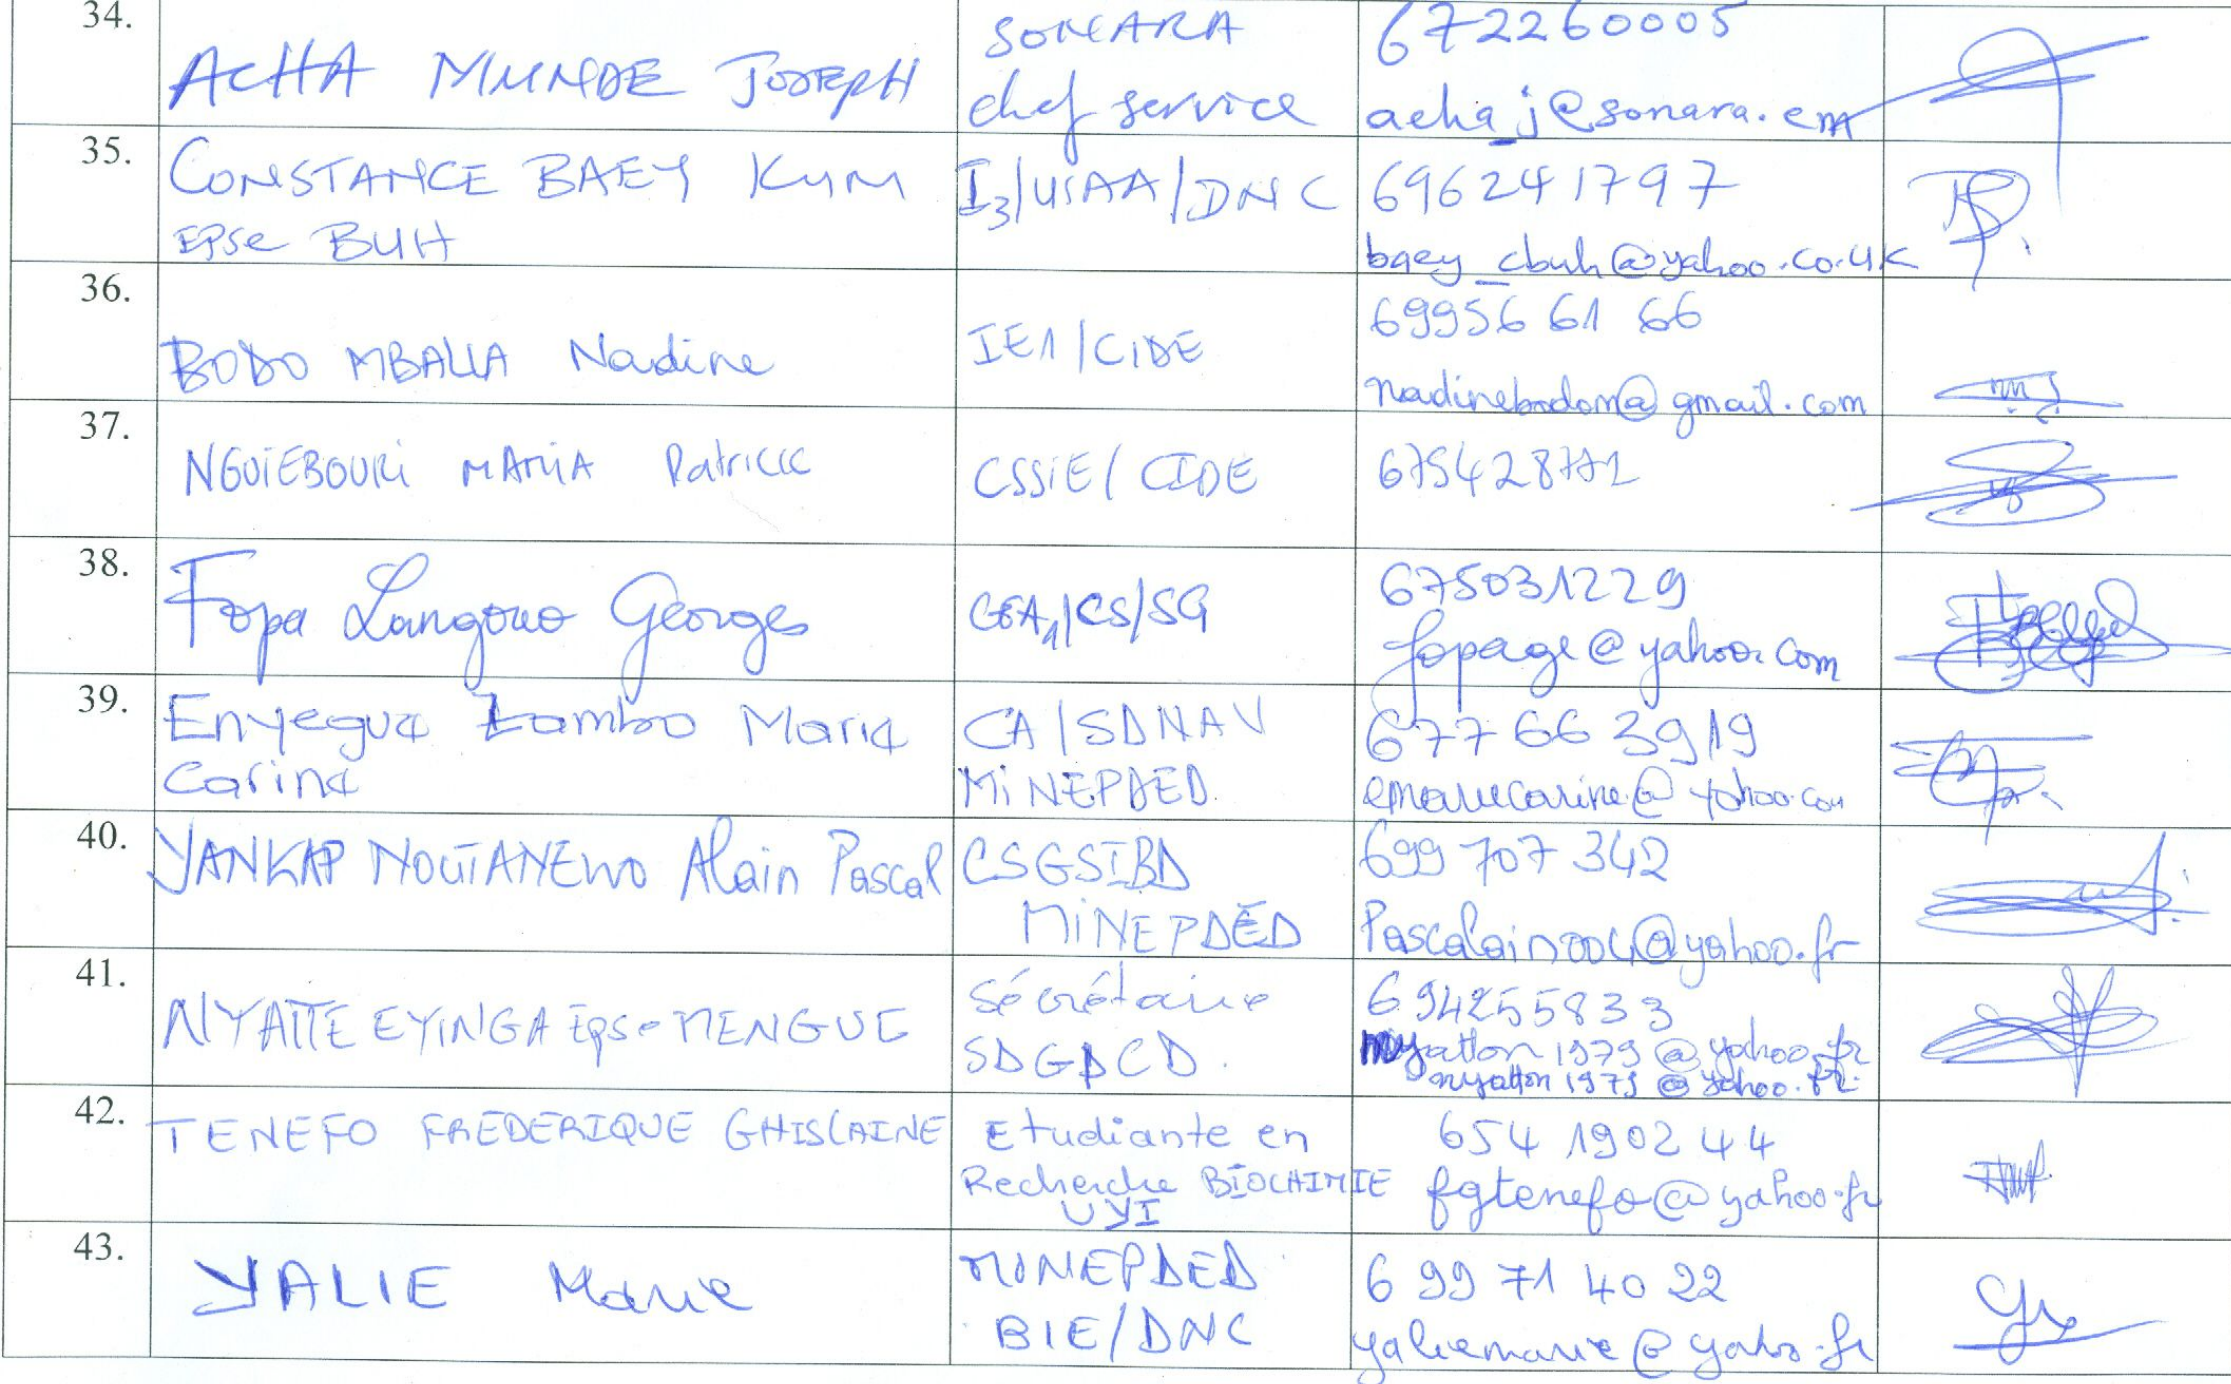 34.
ACHA MUNDE JOSEPH
SONARA
chef service
672260005
acha_j@sonara.cm
35.
CONSTANCE BAEY KUM
EPSE BUH
I3/UIAA/DNC
696241797
baey_cbuh@yahoo.co.uk
36.
BODO MBALLA Nadine
IE1/CIDE
69956 61 66
nadinebodom@gmail.com
37.
NGUIEBOURI MARIA Patrick
CSSIE/CIDE
38.
Fopa Langouo Georges
CEA1/CS/SG
675031229
fopage@yahoo.com
39.
Enyegue Zambo Marie
Carine
CA/SDNAV
MINEPDED
677 66 3919
emariecarine@yahoo.com
40.
YANKAP NOUTANEWO Alain Pascal
CSGSIBD
MINEPDED
699 707 342
Pascalain2004@yahoo.fr
41.
NYATTE EYINGA Epse MENGUE
Sécrétaire
SDGDCD.
694255833
nyatton1979@yahoo.fr
nyatton1979@yahoo.fr.
42.
TENEFO FREDERIQUE GHISLAINE
Etudiante en
Recherche BIOCHIMIE
UYI
654 1902 44
fgtenefo@yahoo.fr
43.
YALIE Marie
MINEPDED
BIE/DNC
6 99 71 40 22
yaliemarie@yaho.fr